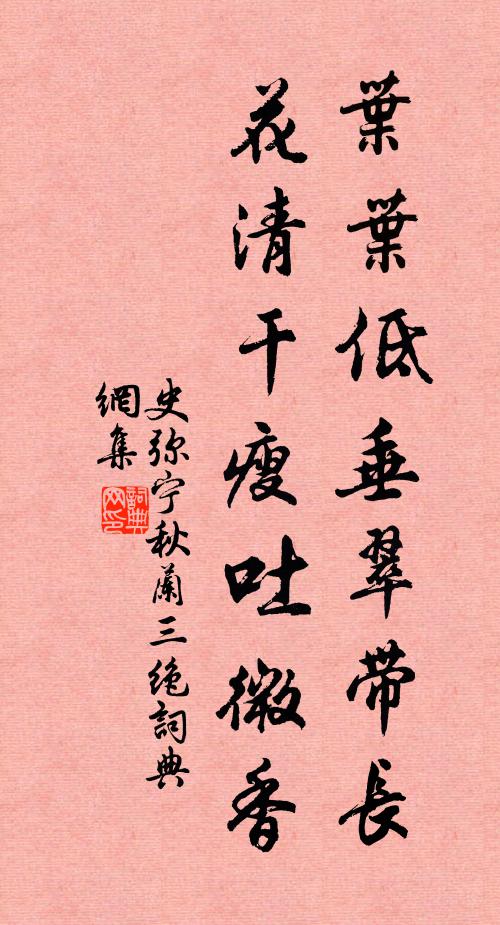 葉葉低垂翠帶長
花清干瘦吐微香
史弥宁秋蘭三絶詞典
網集
詞典
网印